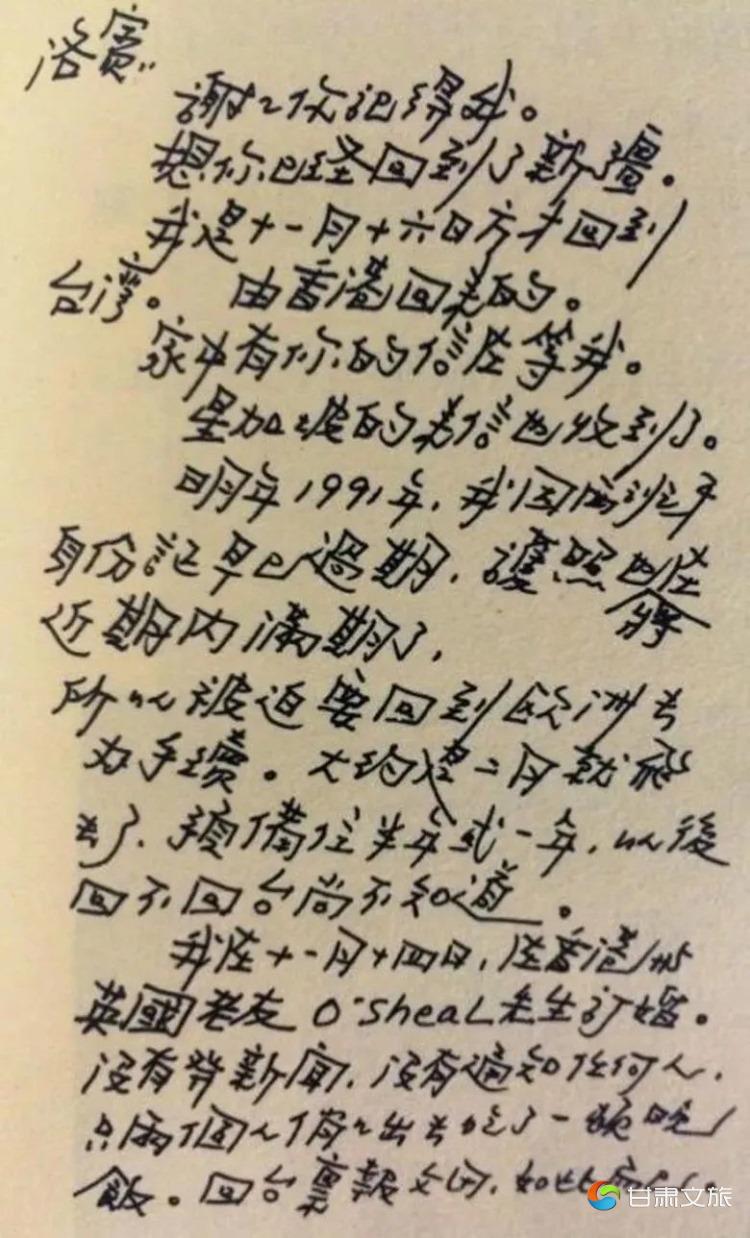 洛賓:
謝々你記得我。
想你已经回到了新疆。
我是十一月十六日方才回到
台湾。 由香港回来的。
家中有你的信在等我。
星加坡的来信也收到了。
明年1991年,我因西班牙
身份証早已過期,護照也在
將
近期内滿期了,
所以被迫要回到欧洲去
办手續。大约是二月就飛
去了,預備住半年或一年,以後
回不回台尚不知道。
我在十一月十四日,在香港與
英國老友 O'Sheal 先生訂婚。
没有發新聞,没有通知任何人,
只兩個人悄々出去吃了一頓晚
飯。回台稟報父母,如此而已。
甘肃文旅